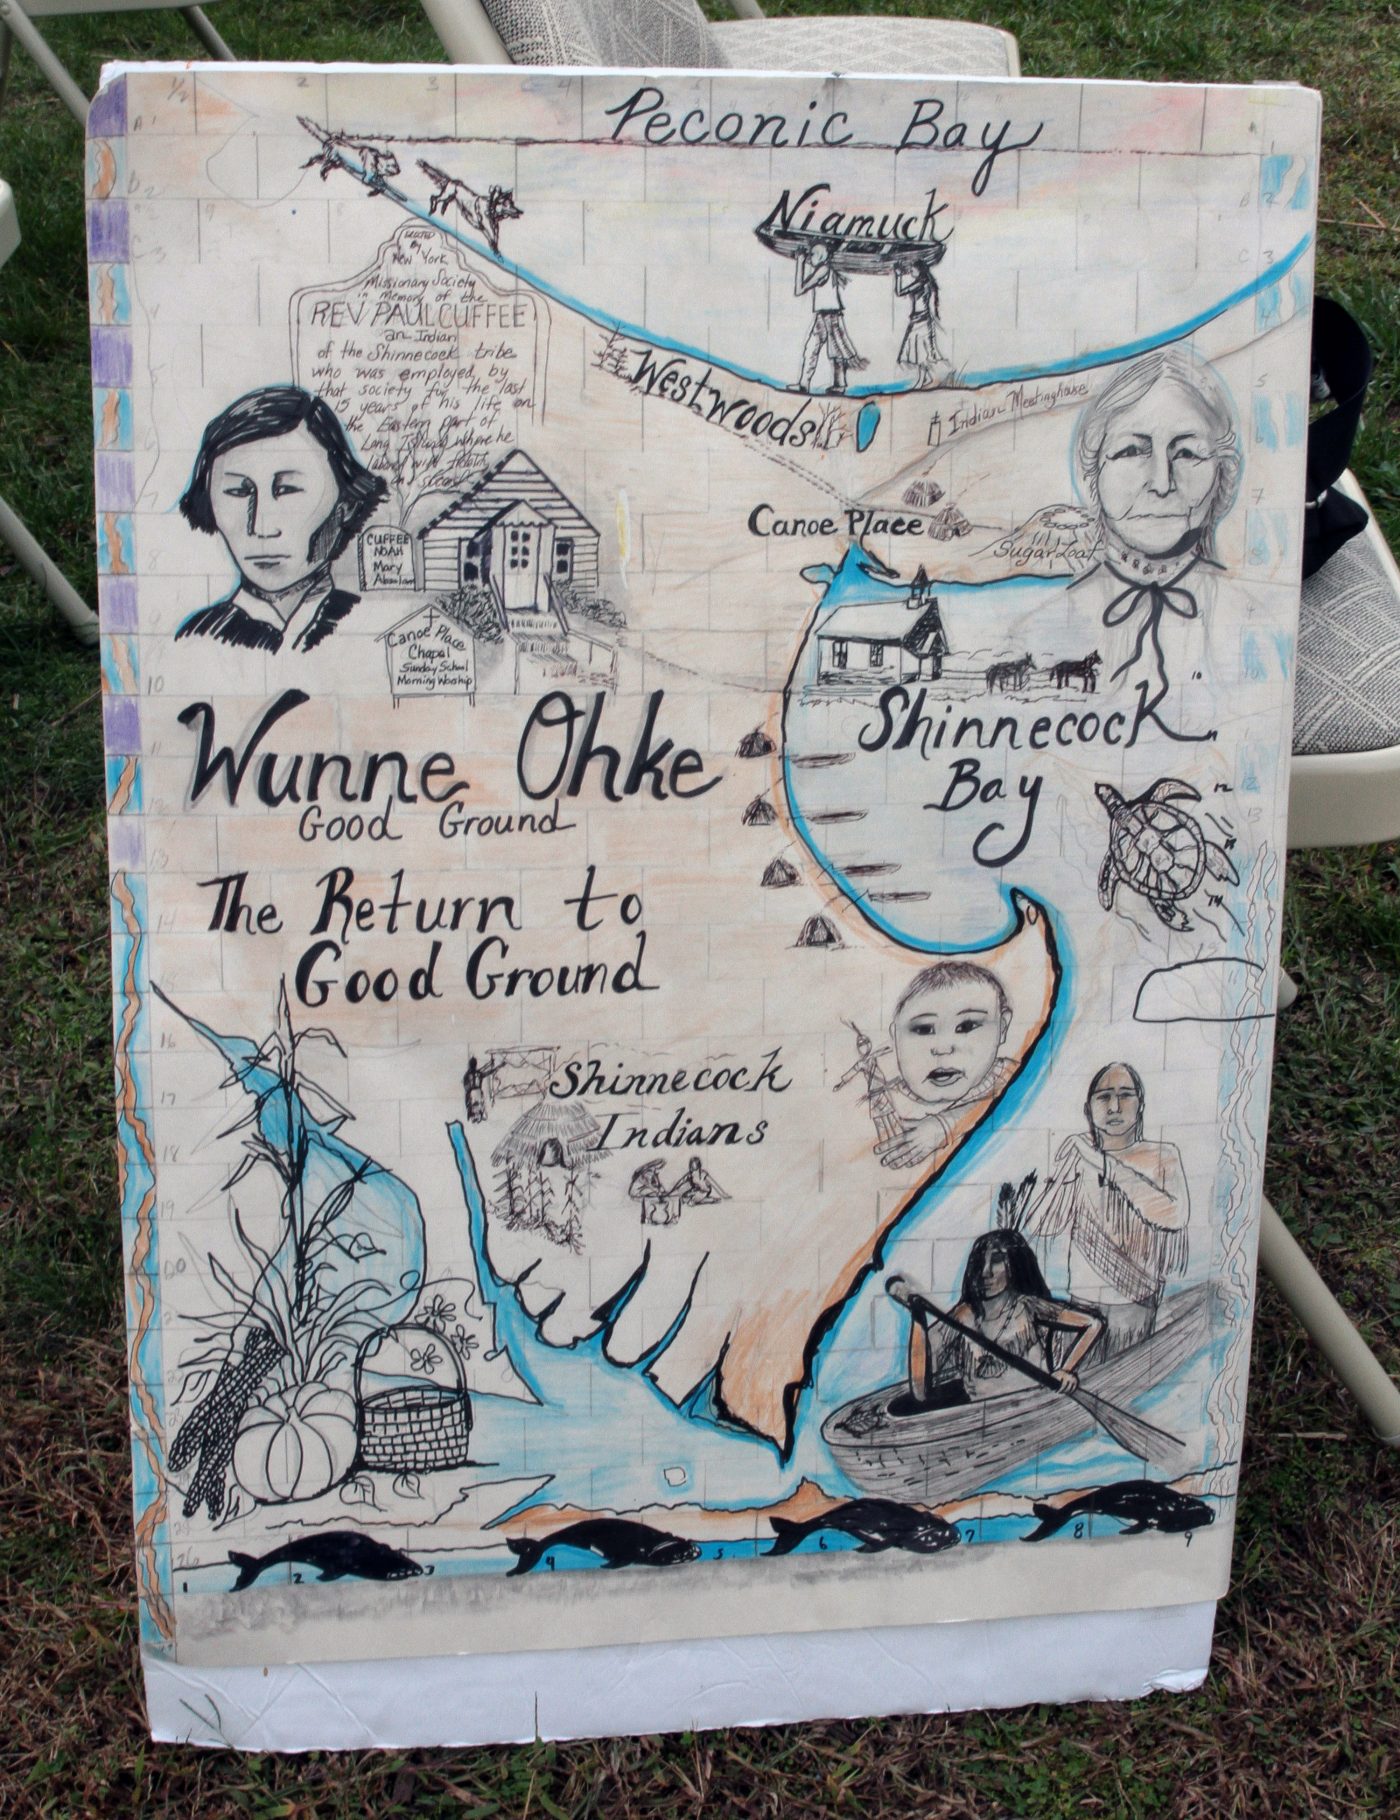 Peconic Bay
Niamuck
ERECTED
BY
New York
Missionary Society
in memory of the
REV PAUL CUFFEE
an Indian
of the Shinnecock tribe
who was employed by
that society for the last
15 years of his life on
the Eastern part of
Long Island where he
labored with fidelity
and success
Westwoods
Indian Meetinghouse
Canoe Place
Sugar Loaf
CUFFEE
NOAH
Mary
Canoe Place
Chapel
Sunday School
Morning Worship
Shinnecock
Bay
Wunne Ohke
Good Ground
The Return to
Good Ground
Shinnecock
Indians
1 2 3 4 5 6 7 8 9